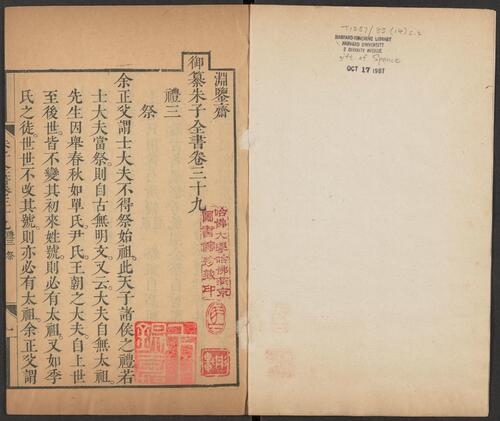 T1237/82 (14) c.2
HARVARD-YENCHING LIBRARY
HARVARD UNIVERSITY
2 DIVINITY AVENUE
gift of Spence
OCT 17 1987
淵鑒齋
御纂朱子全書卷三十九
禮三
祭
余正父謂士大夫不得祭始祖。此天子諸侯之禮。若
士大夫當祭。則自古無明文。又云大夫自無太祖。
先生因舉春秋如單氏尹氏。王朝之大夫。自上世
至後世。皆不變其初來姓號。則必有太祖。又如季
氏之徒。世世不改其號。則亦必有太祖。余正父謂
哈佛大學哈佛燕京
圖書館珍藏印